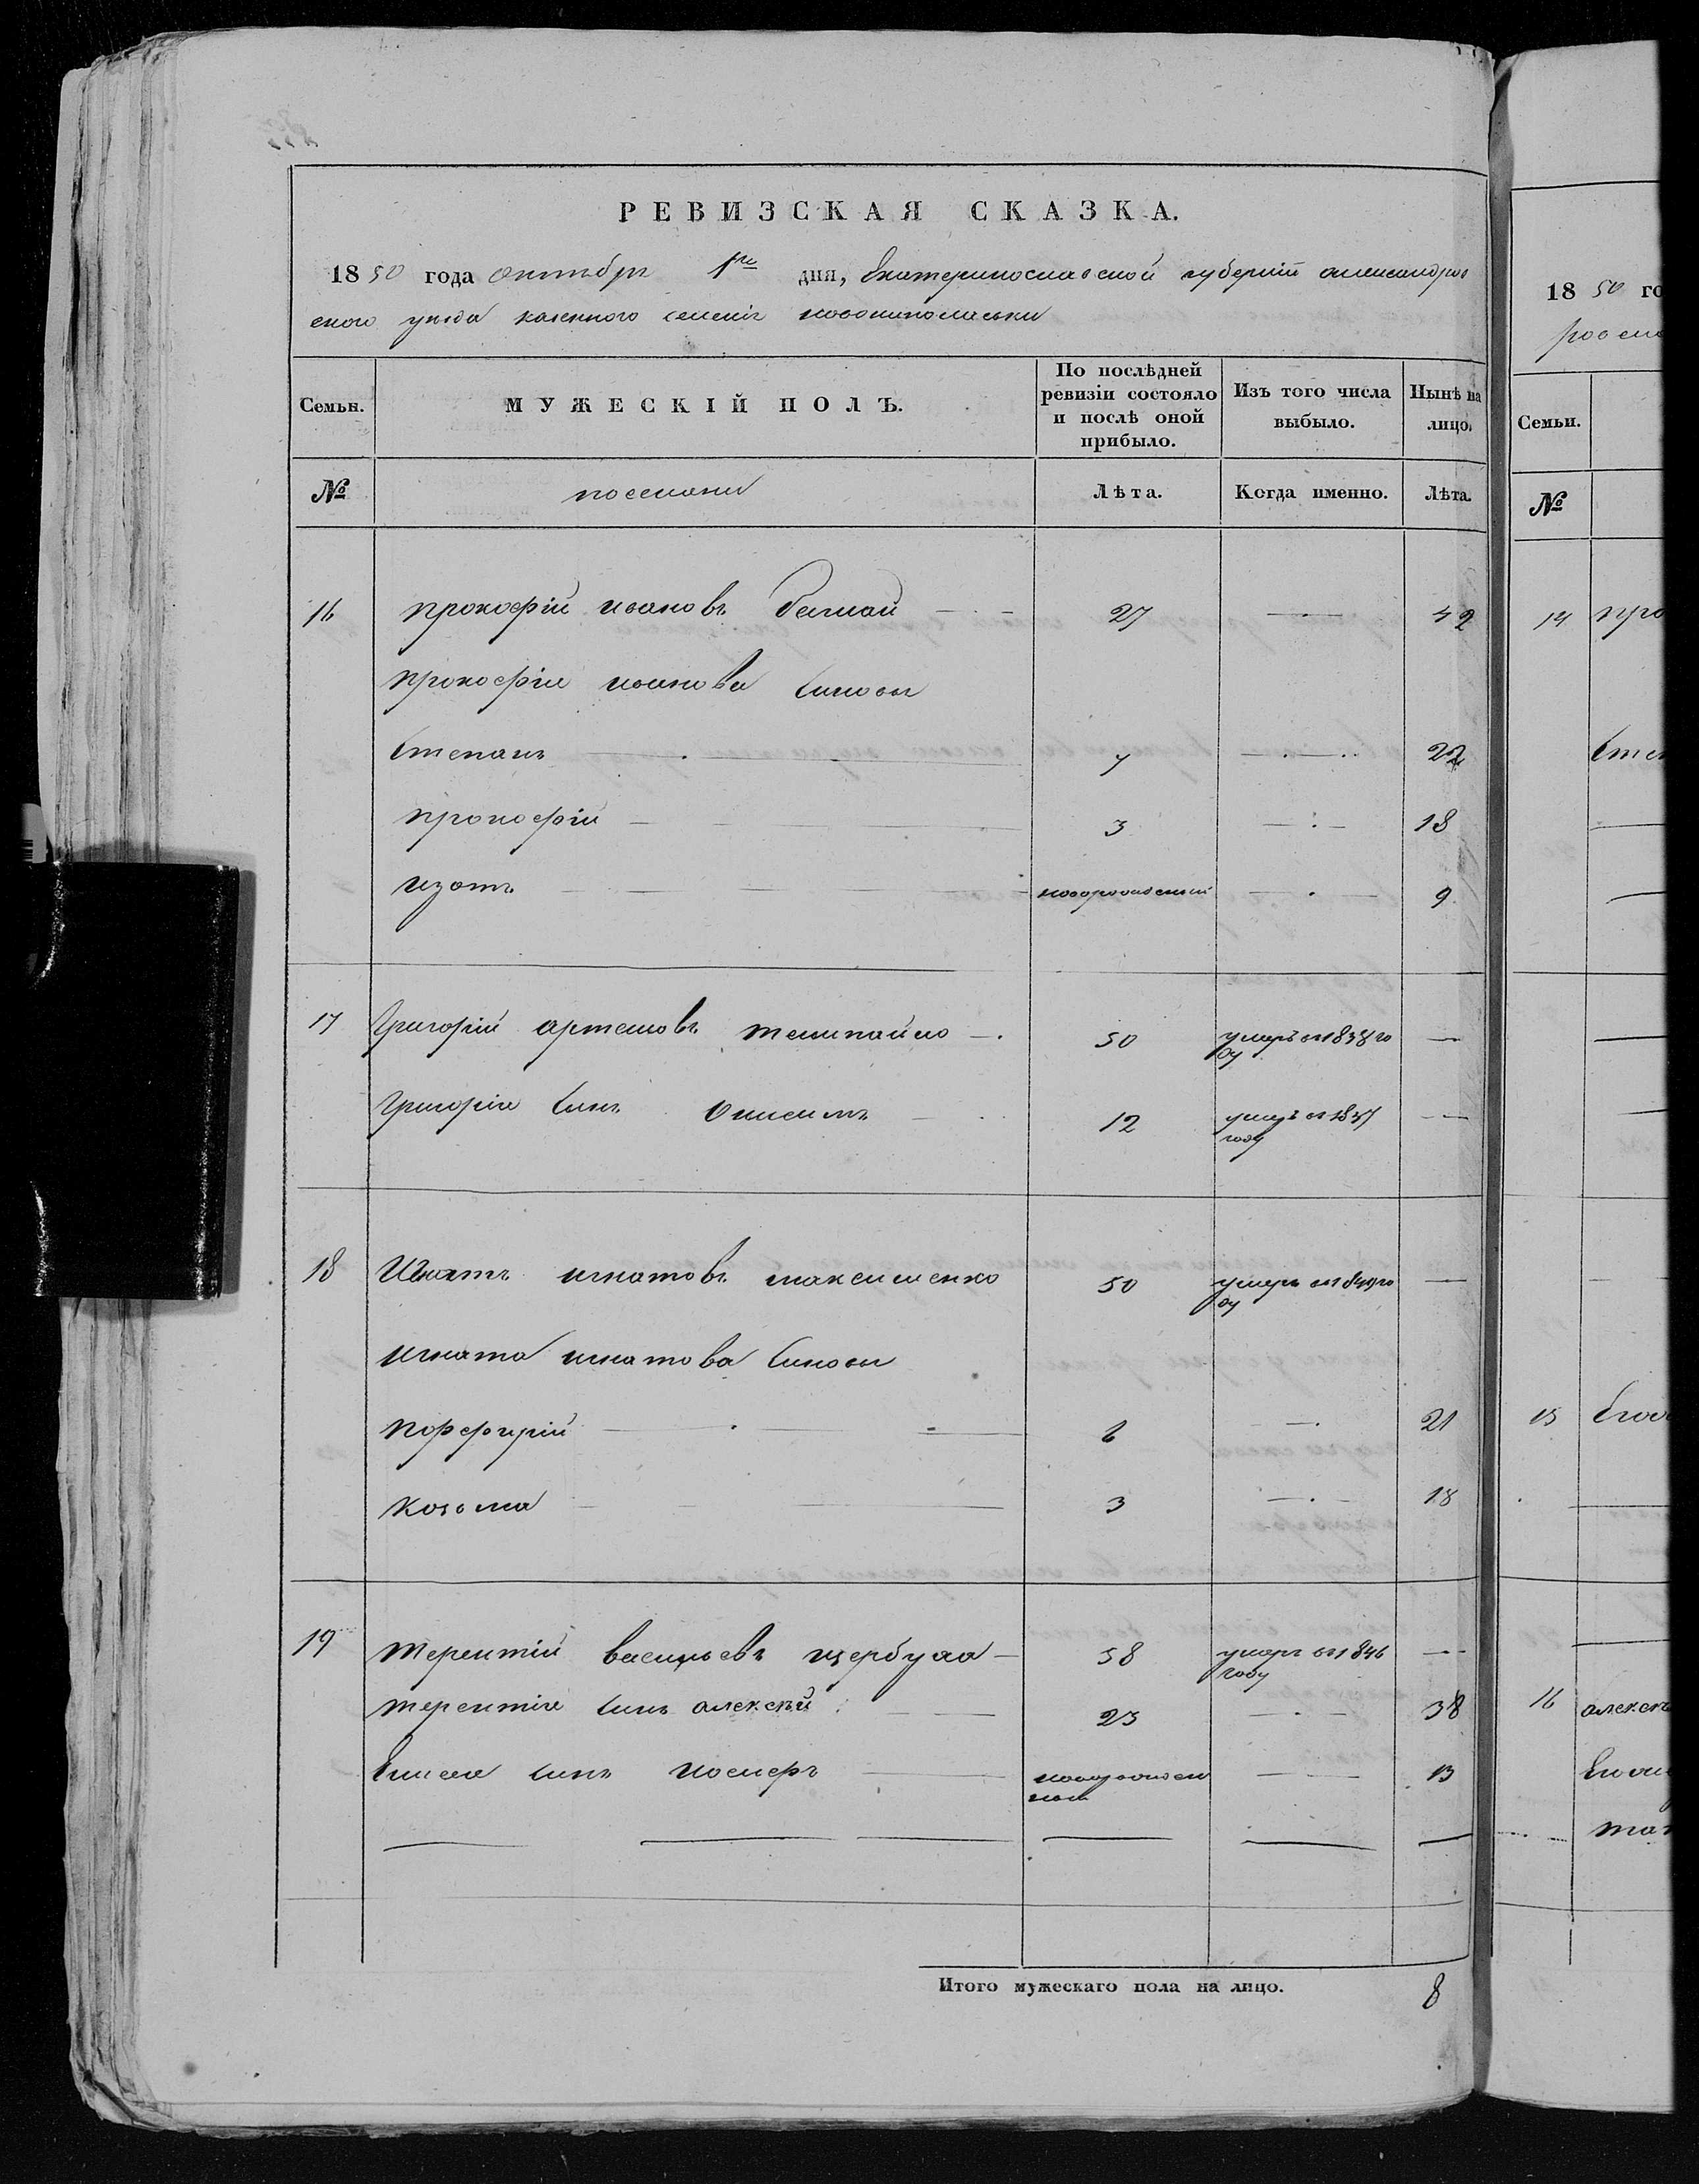 РЕВИЗСКАЯ СКАЗКА.
1850 года октября 1го дня, Екатеринославской губерніи александров
ского уезда казенного селенія новониколаевки
Семьи.
МУЖЕСКІЙ ПОЛЪ.
По послѣдней ревизіи состояло и послѣ оной прибыло.
Изъ того числа выбыло.
Нынѣ на лицо.
№
поселяни
Лѣта.
Когда именно.
Лѣта.
16 прокофій ивановъ 27 — 42
прокофія иванова синовя
Степанъ 7 — 22
прокофій 3 — 18
изотъ новорожденый — 9
17 Григорій артемовъ 50 умеръ в 1838 го
ду —
Григорія синъ Онисимъ 12 умеръ в 1837
году —
18 Игнатъ игнатовъ максименко 50 умеръ в 1849 го
ду —
игната игнатова синови
порфирій 6 — 21
козма 3 — 18
19 терентій васильевъ щербуха 58 умеръ в 1846
году —
терентія синъ алексѣй 23 — 38
синъ новорожден
ной — 13
Итого мужескаго пола на лицо. 8
1850 го
ровско
Семьи.
№
14 про
Степ
15
16 алексѣ